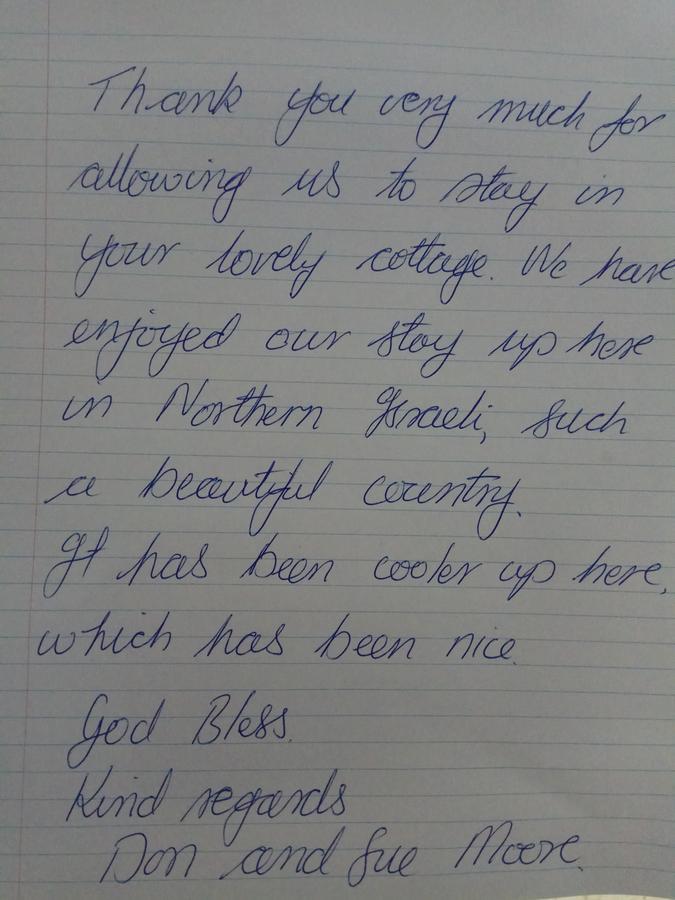 Thank you very much for
allowing us to stay in
your lovely cottage. We have
enjoyed our stay up here
in Northern Israeli, such
a beautiful country.
It has been cooler up here,
which has been nice.
God Bless.
Kind regards
Don and Sue Moore.